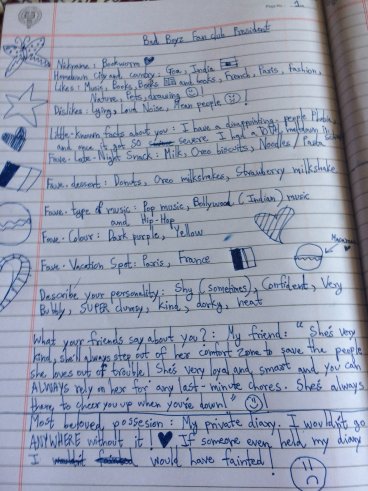 Page No. 1
Bad Boyz Fan club President
Nickname : Bookworm
Hometown City and country : Goa, India
Likes : Music, Books, Books and books, French, Paris, Fashion,
Nature, Pets, drawing
Dislikes : Lying, Loud Noise, Mean people
Little-known facts about you : I have a disappointing people Phobia
and once it got SO severe, I had a meltdown
Fave. Late-Night Snack : Milk, Oreo biscuits, Noodles / Pasta
Fave. dessert : Donuts, Oreo milkshakes, Strawberry milkshake
Fave. type of music : Pop music, Bollywood (Indian) music
and Hip-Hop
Fave. Colour : Dark purple, Yellow
Fave. Vacation Spot : Paris, France
Describe your personality : Shy (sometimes), Confident, Very
Bubbly, SUPER clumsy, kind, dorky, neat
What your friends say about you? : My friend : "She's very
kind, she'll always step out of her comfort zone to save the people
she loves out of trouble! She's very loyal and smart and you can
ALWAYS rely on her for any last-minute chores. She's always
there, to cheer you up when you're down!"
Most beloved possesion : My private diary. I wouldn't go
ANYWHERE without it! If someone even held my diary
I would have fainted!